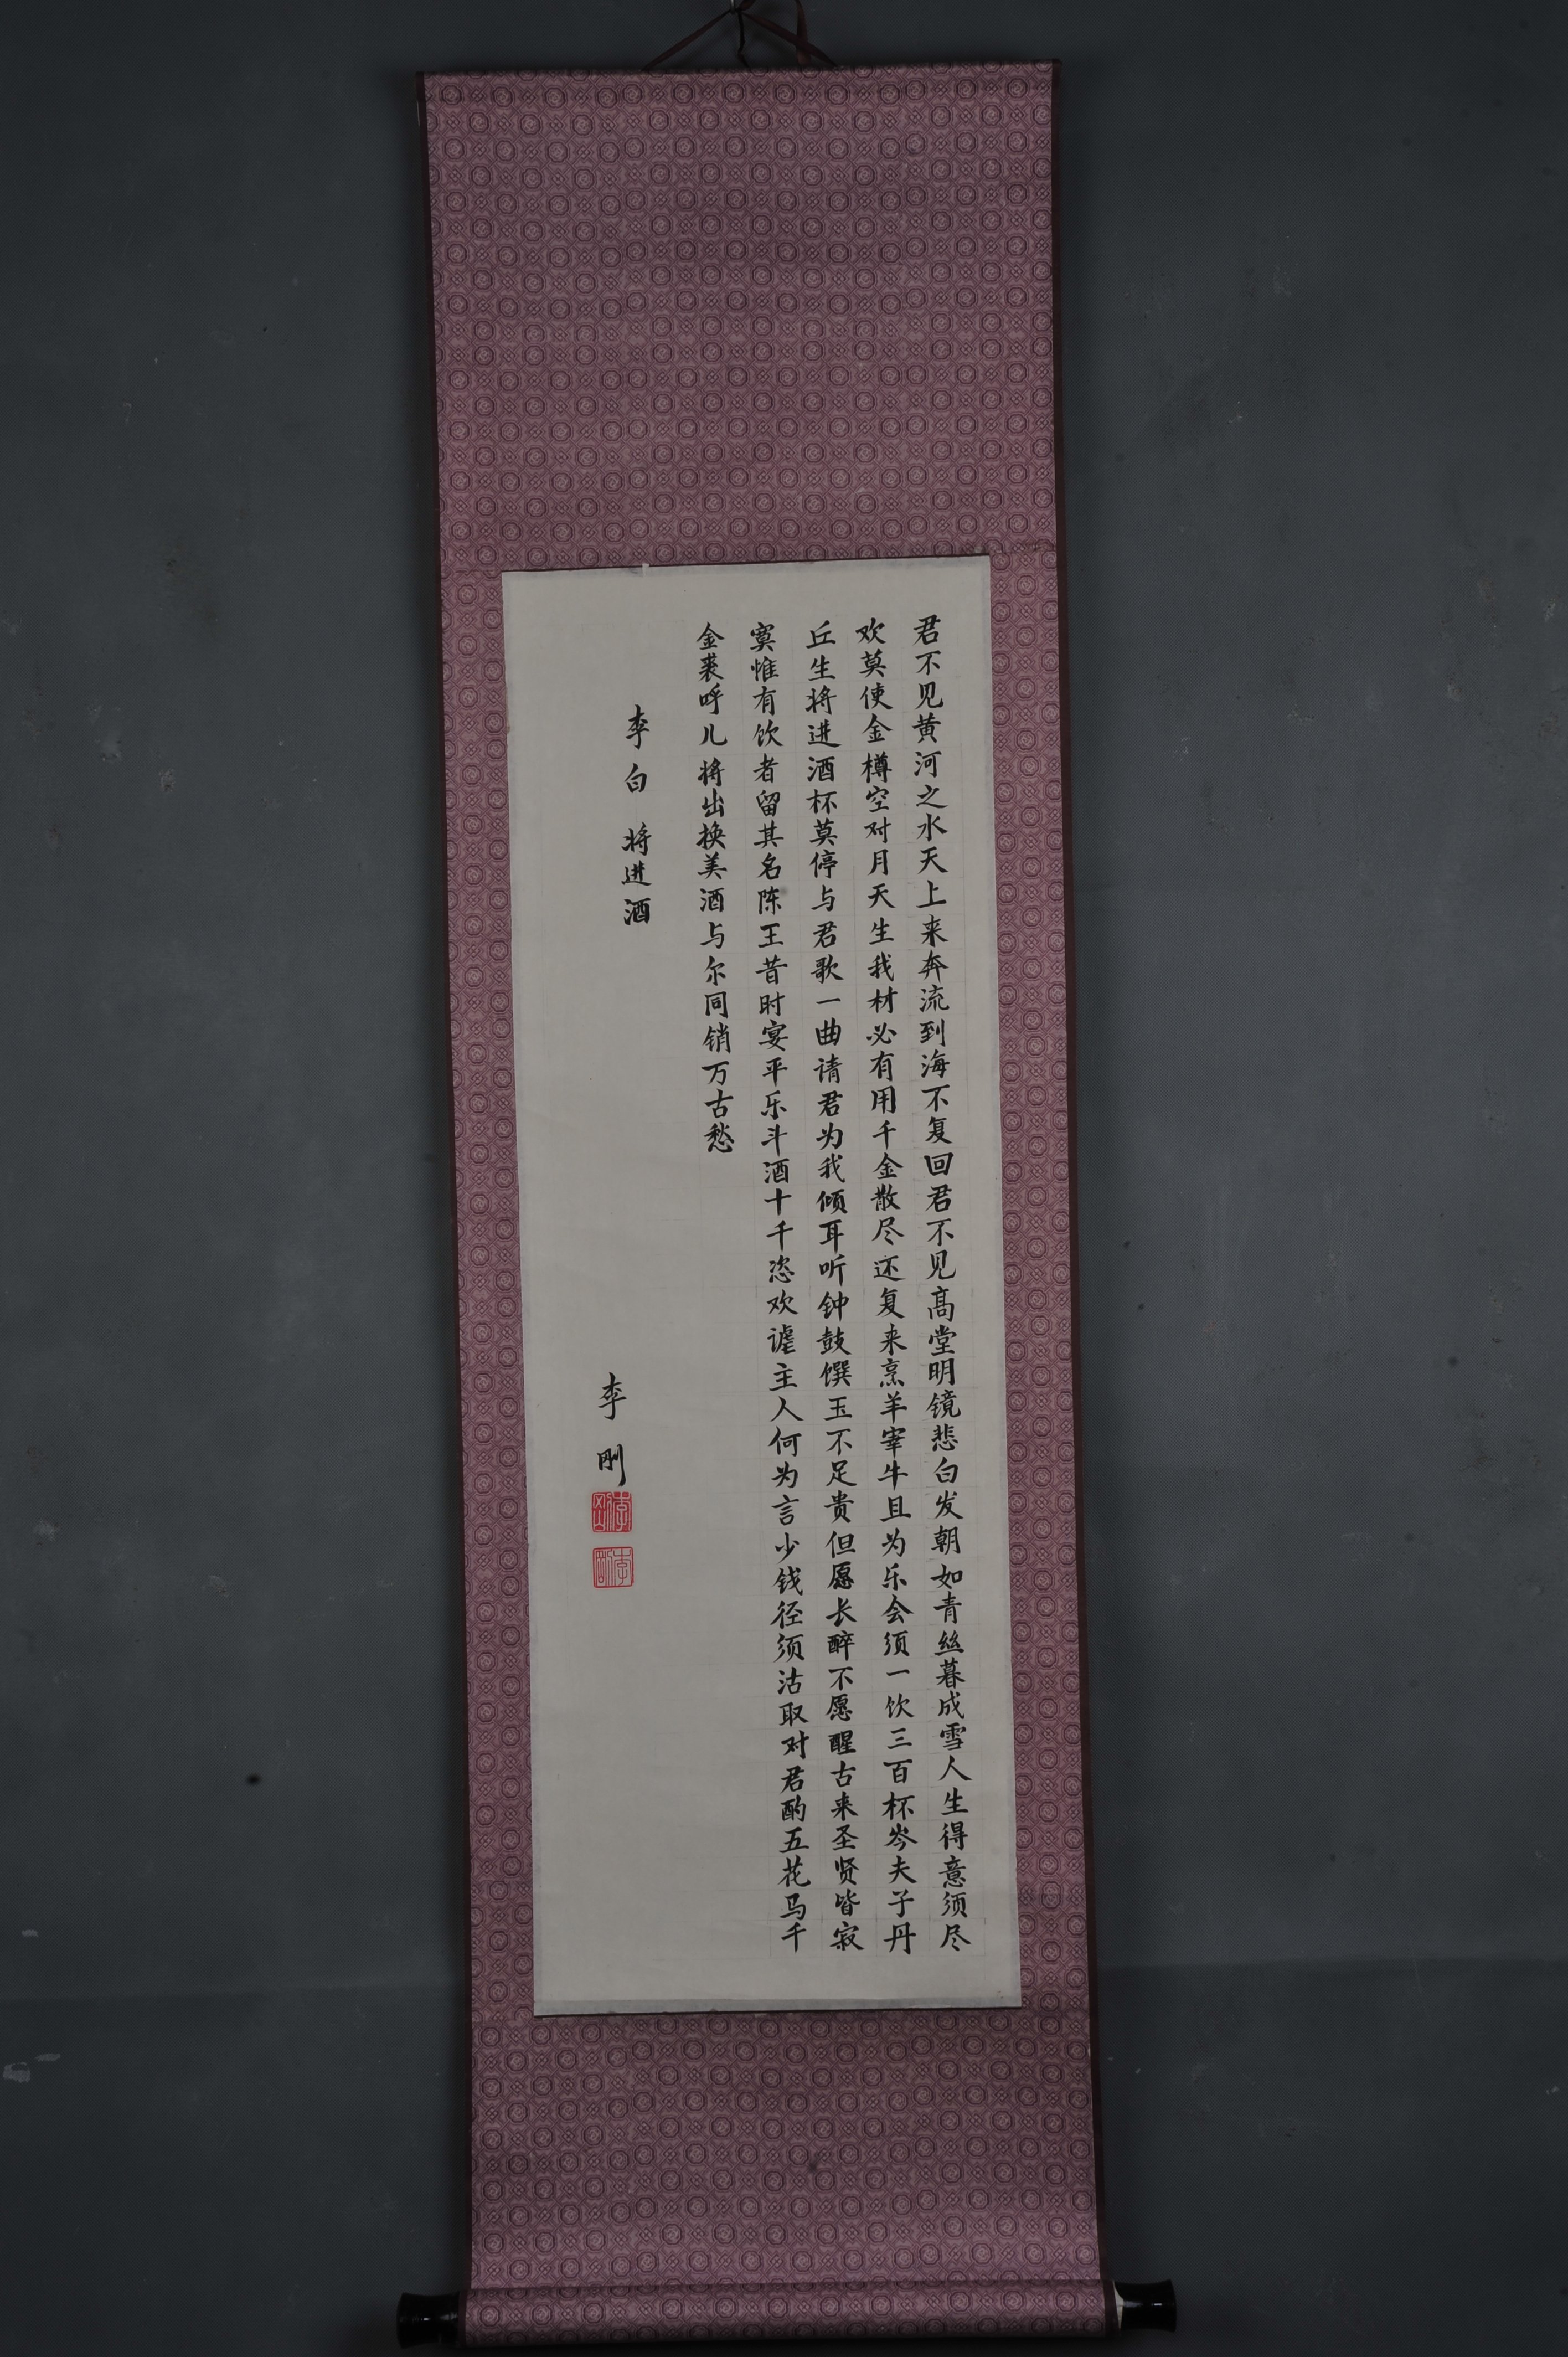 君不见黄河之水天上来奔流到海不复回君不见高堂明镜悲白发朝如青丝暮成雪人生得意须尽
欢莫使金樽空对月天生我材必有用千金散尽还复来烹羊宰牛且为乐会须一饮三百杯岑夫子丹
丘生将进酒杯莫停与君歌一曲请君为我倾耳听钟鼓馔玉不足贵但愿长醉不愿醒古来圣贤皆寂
寞惟有饮者留其名陈王昔时宴平乐斗酒十千恣欢谑主人何为言少钱径须沽取对君酌五花马千
金裘呼儿将出换美酒与尔同销万古愁
李白 将进酒
李刚